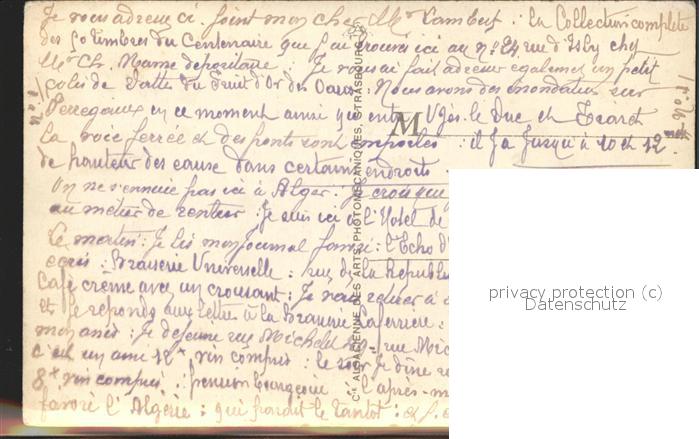 Je vous adresse ci-joint mon cher Mr Lambert : la Collection complète
des 50 timbres du Centenaire que j'ai trouvés ici au n: 24 rue d'Isly chez
Mr Ch. dépositaire : Je vous ai fait adresser également un petit
colis de Dattes du Fruit d'Or des Oasis : Nous avons des inondations sur
Perregaux en ce moment ainsi que entre le Duc et
la voie ferrée et des ponts sont emportés : il y a jusqu'à 10 et 12 m
de hauteur des eaux dans certains endroits
On ne s'ennuie pas ici à Alger : Je crois que
au métier de rentier : Je suis ici à l'Hotel de
Le matin : Je lis mon journal favori : l'Echo d'
écris : Brasserie Universelle : rue de la Républ
Café crème avec un croissant : Je vais retirer à
et Je réponds aux lettres à la Brasserie Laferrière :
mon anis : Je déjeune rue Michelet rue Mic
c'est un ami 12 f vin compris : le soir Je dîne
8 f vin compris : pension bourgeoise : l'après-m
favori l'Algérie : qui paraît le tantôt : et
M
Cie ALSACIENNE DES ARTS PHOTOMÉCANIQUES, STRASBOURG
privacy protection (c)
Datenschutz